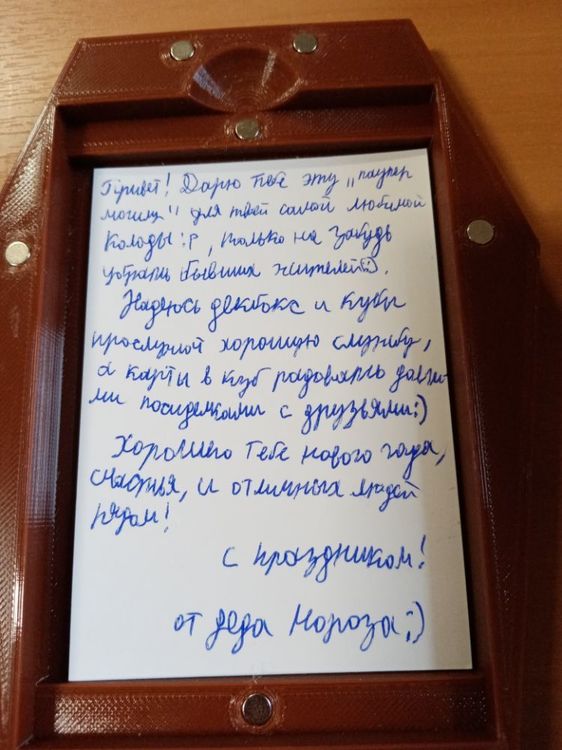 Привет! Дарю тебе эту „паупер
могилу" для твоей самой любимой
колоды :P, только не забудь
убрать бывших жителей :).
Надеюсь декбокс и кубы
прослужат хорошую службу,
а карты в куб радовать долги-
ми посиделками с друзьями :)
Хорошего тебе нового года,
счастья, и отличных людей
рядом!
С праздником!
от деда Мороза ;)